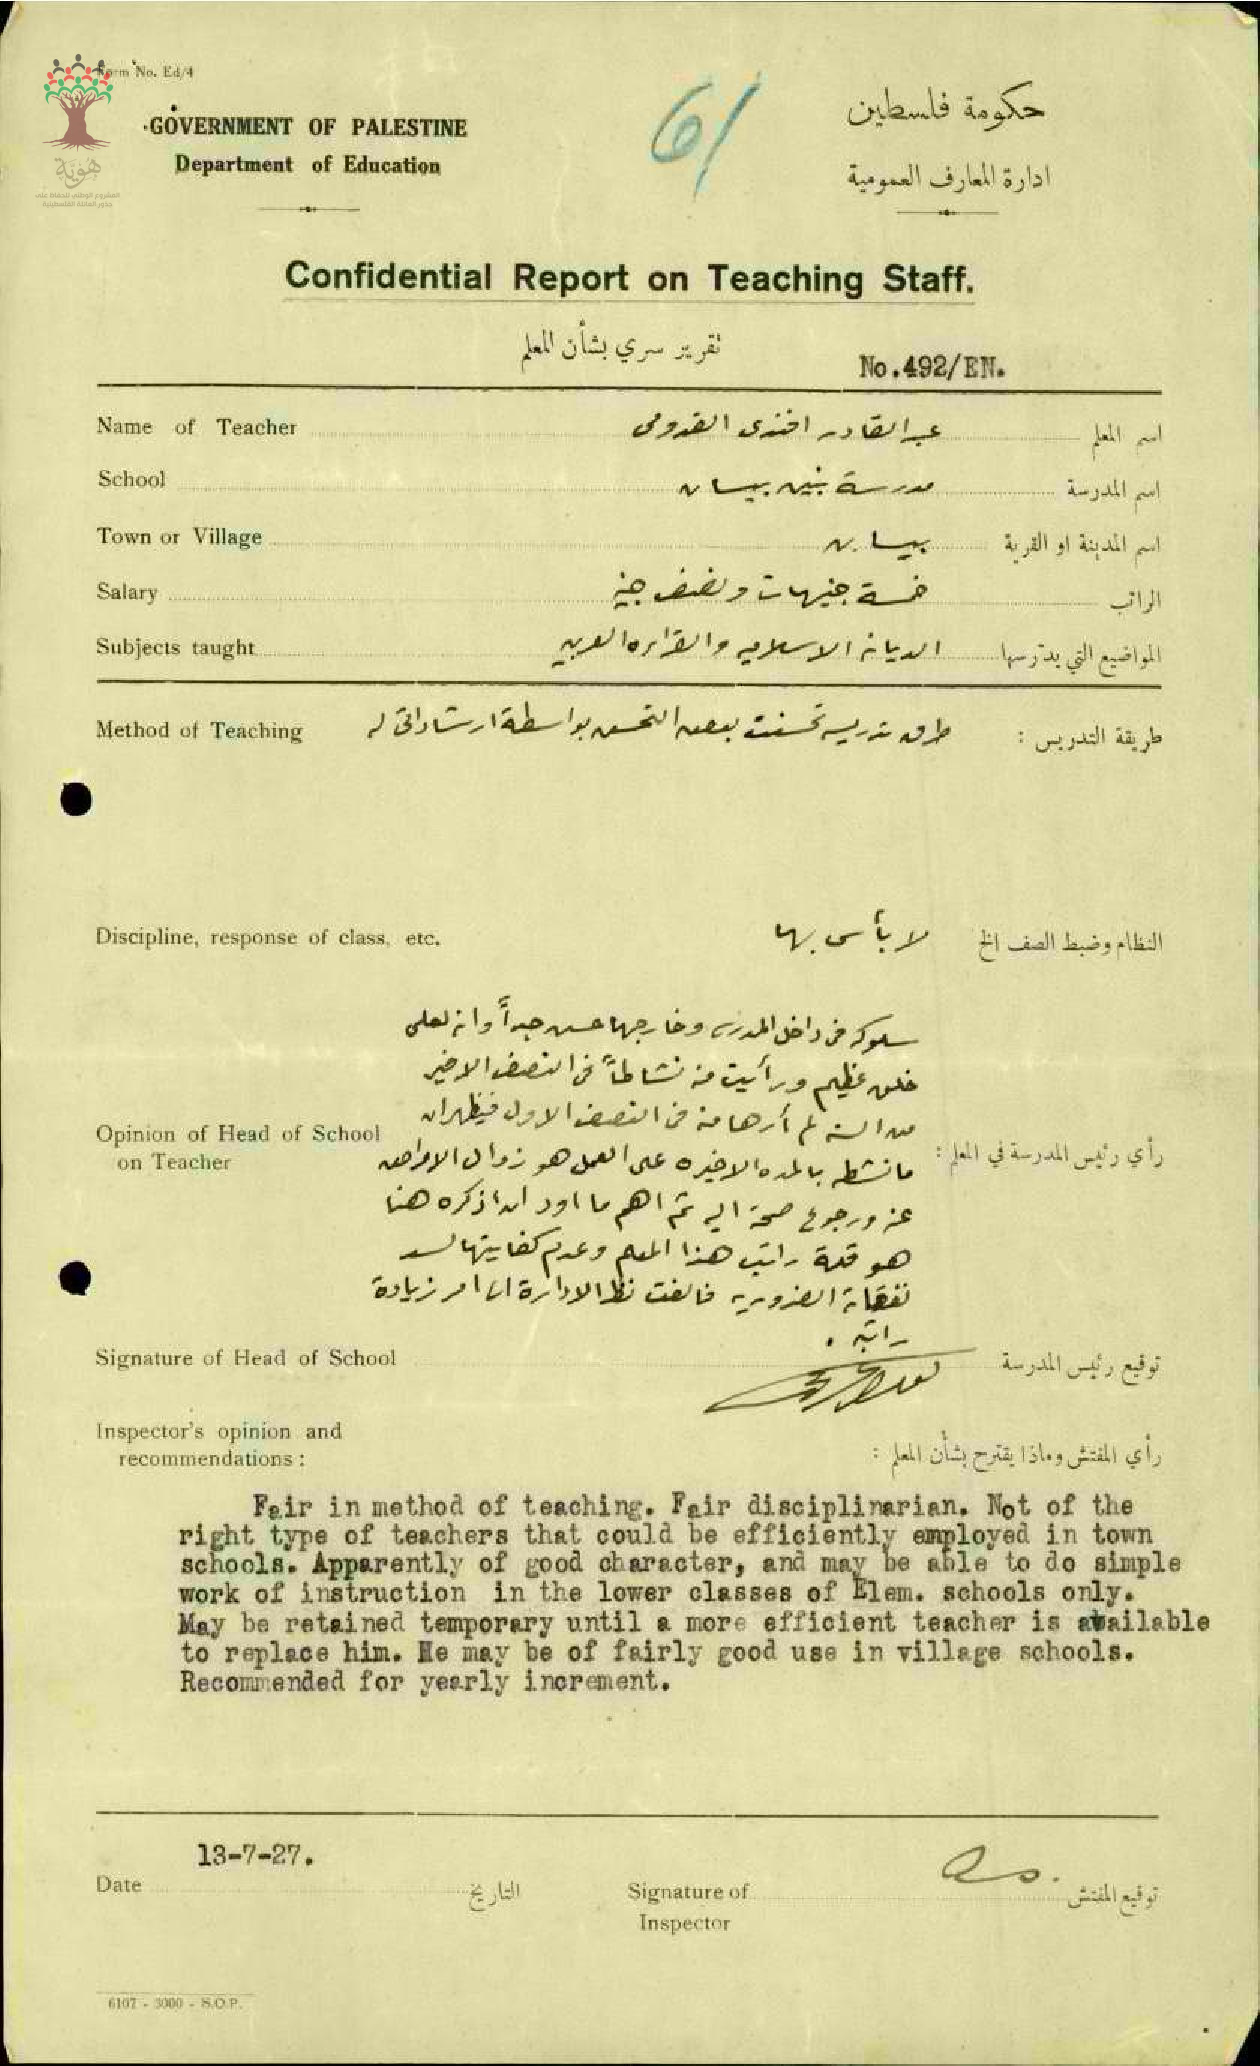 Form No. Ed/4
GOVERNMENT OF PALESTINE
Department of Education
61
حكومة فلسطين
ادارة المعارف العمومية
هوية
المشروع الوطني للحفاظ على
جذور العائلة الفلسطينية
Confidential Report on Teaching Staff.
تقرير سري بشأن المعلم
No.492/EN.
Name of Teacher عبد القادر افندي القدومي اسم المعلم
School مدرسة بنين بيسان اسم المدرسة
Town or Village بيسان اسم المدينة او القرية
Salary خمسة جنيهات ونصف جنيه الراتب
Subjects taught الديانه الاسلاميه والقراءه العربيه المواضيع التي يدرّسها
Method of Teaching طرق تدريسه تحسنت بعض التحسن بواسطة ارشاداتي له طريقة التدريس :
Discipline, response of class, etc. لا بأس بها النظام وضبط الصف الخ
سلوكه في داخل المدرسه وخارجها حسن جداً وانه لعلى
خلق عظيم ورأيت منه نشاطاً في النصف الاخير
من السنه لم أرها منه في النصف الاول فيظهر ان
Opinion of Head of School
on Teacher
رأي رئيس المدرسة في المعلم :
ما نشطه بالمده الاخيره على العمل هو زوال الامراض
عنه ورجوع صحته اليه ثم اهم ما اود ان اذكره هنا
هو قلة راتب هذا المعلم وعدم كفايتها لسد
نفقاته الضروريه فالفت نظر الادارة الى امر زيادة
راتبه .
Signature of Head of School توقيع رئيس المدرسة
Inspector's opinion and
recommendations :
رأي المفتش وماذا يقترح بشأن المعلم :
Fair in method of teaching. Fair disciplinarian. Not of the
right type of teachers that could be efficiently employed in town
schools. Apparently of good character, and may be able to do simple
work of instruction in the lower classes of Elem. schools only.
May be retained temporary until a more efficient teacher is available
to replace him. He may be of fairly good use in village schools.
Recommended for yearly increment.
13-7-27.
Date التاريخ
Signature of
Inspector
توقيع المفتش
6107 - 3000 - S.O.P.